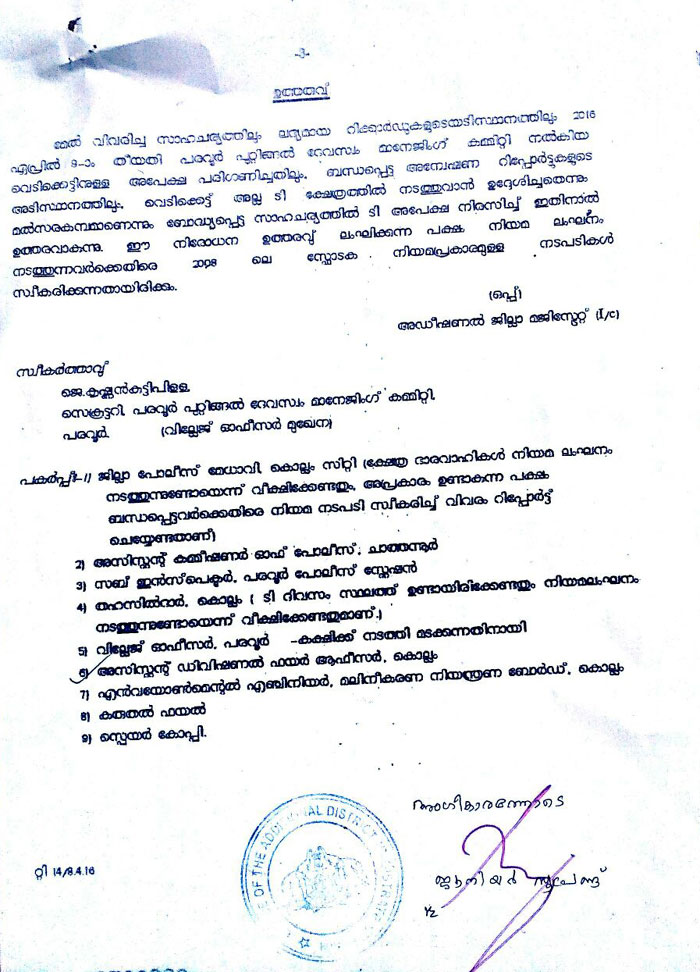 -3-
ഉത്തരവ്
മേൽ വിവരിച്ച സാഹചര്യത്തിലും ലഭ്യമായ റിക്കാർഡുകളുടെയടിസ്ഥാനത്തിലും 2016
എപ്രിൽ 9-ാം തീയതി പരവൂർ പുറ്റിങ്ങൽ ദേവസ്വം മാനേജിംഗ് കമ്മിറ്റി നൽകിയ
വെടിക്കെട്ടിനുള്ള അപേക്ഷ പരിഗണിച്ചതിലും, ബന്ധപ്പെട്ട അന്വേഷണ റിപ്പോർട്ടുകളുടെ
അടിസ്ഥാനത്തിലും, വെടിക്കെട്ട് അല്ല ടി ക്ഷേത്രത്തിൽ നടത്തുവാൻ ഉദ്ദേശിച്ചതെന്നും
മൽസരകമ്പമാണെന്നും ബോദ്ധ്യപ്പെട്ട സാഹചര്യത്തിൽ ടി അപേക്ഷ നിരസിച്ച് ഇതിനാൽ
ഉത്തരവാകുന്നു. ഈ നിരോധന ഉത്തരവ് ലംഘിക്കുന്ന പക്ഷം നിയമ ലംഘനം
നടത്തുന്നവർക്കെതിരെ 2008 ലെ സ്ഫോടക നിയമപ്രകാരമുള്ള നടപടികൾ
സ്വീകരിക്കുന്നതായിരിക്കും.
(ഒപ്പ്)
അഡീഷണൽ ജില്ലാ മജിസ്ട്രേറ്റ് (I/c)
സ്വീകർത്താവ്
ജെ.കൃഷ്ണൻകുട്ടിപിളള,
സെക്രട്ടറി, പരവൂർ പുറ്റിങ്ങൽ ദേവസ്വം മാനേജിംഗ് കമ്മിറ്റി,
പരവൂർ. (വില്ലേജ് ഓഫീസർ മുഖേന)
പകർപ്പ്:-1) ജില്ലാ പോലീസ് മേധാവി, കൊല്ലം സിറ്റി (ക്ഷേത്ര ഭാരവാഹികൾ നിയമ ലംഘനം
നടത്തുന്നുണ്ടോയെന്ന് വീക്ഷിക്കേണ്ടതും, അപ്രകാരം ഉണ്ടാകുന്ന പക്ഷം
ബന്ധപ്പെട്ടവർക്കെതിരെ നിയമ നടപടി സ്വീകരിച്ച് വിവരം റിപ്പോർട്ട്
ചെയ്യേണ്ടതാണ്)
2) അസിസ്റ്റന്റ് കമ്മീഷണർ ഓഫ് പോലീസ്, ചാത്തന്നൂർ
3) സബ് ഇൻസ്പെക്ടർ, പരവൂർ പോലീസ് സ്റ്റേഷൻ
4) തഹസിൽദാർ, കൊല്ലം ( ടി ദിവസം സ്ഥലത്ത് ഉണ്ടായിരിക്കേണ്ടതും നിയമലംഘനം
നടത്തുന്നുണ്ടോയെന്ന് വീക്ഷിക്കേണ്ടതുമാണ്.)
5) വില്ലേജ് ഓഫീസർ, പരവൂർ -കക്ഷിക്ക് നടത്തി മടക്കുന്നതിനായി
6) അസിസ്റ്റന്റ് ഡിവിഷണൽ ഫയർ ആഫീസർ, കൊല്ലം
7) എൻവയോൺമെന്റൽ എഞ്ചിനിയർ, മലിനീകരണ നിയന്ത്രണ ബോർഡ്, കൊല്ലം
8) കരുതൽ ഫയൽ
9) സ്പെയർ കോപ്പി.
അംഗീകാരത്തോടെ
OF THE ADDITIONAL DISTRICT
ജൂനിയർ സൂപ്രണ്ട്
റ്റി 14/8.4.16